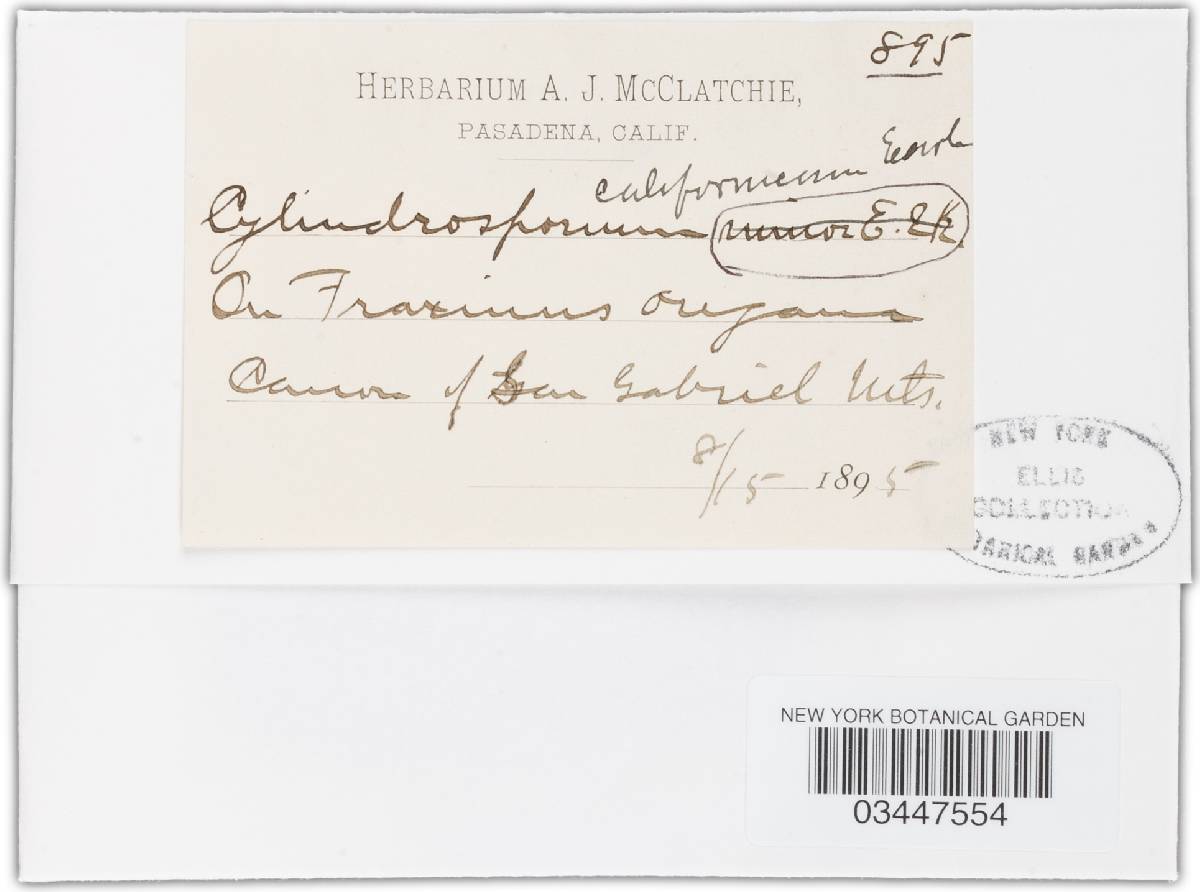 895
HERBARIUM A. J. MCCLATCHIE,
PASADENA, CALIF.
californicum Earle
Cylindrosporium minor E. & K.
On Fraxinus oregana
Canon of San Gabriel Mts.
8/15 1895
NEW YORK
ELLIS
COLLECTION
BOTANICAL GARDEN
NEW YORK BOTANICAL GARDEN
03447554